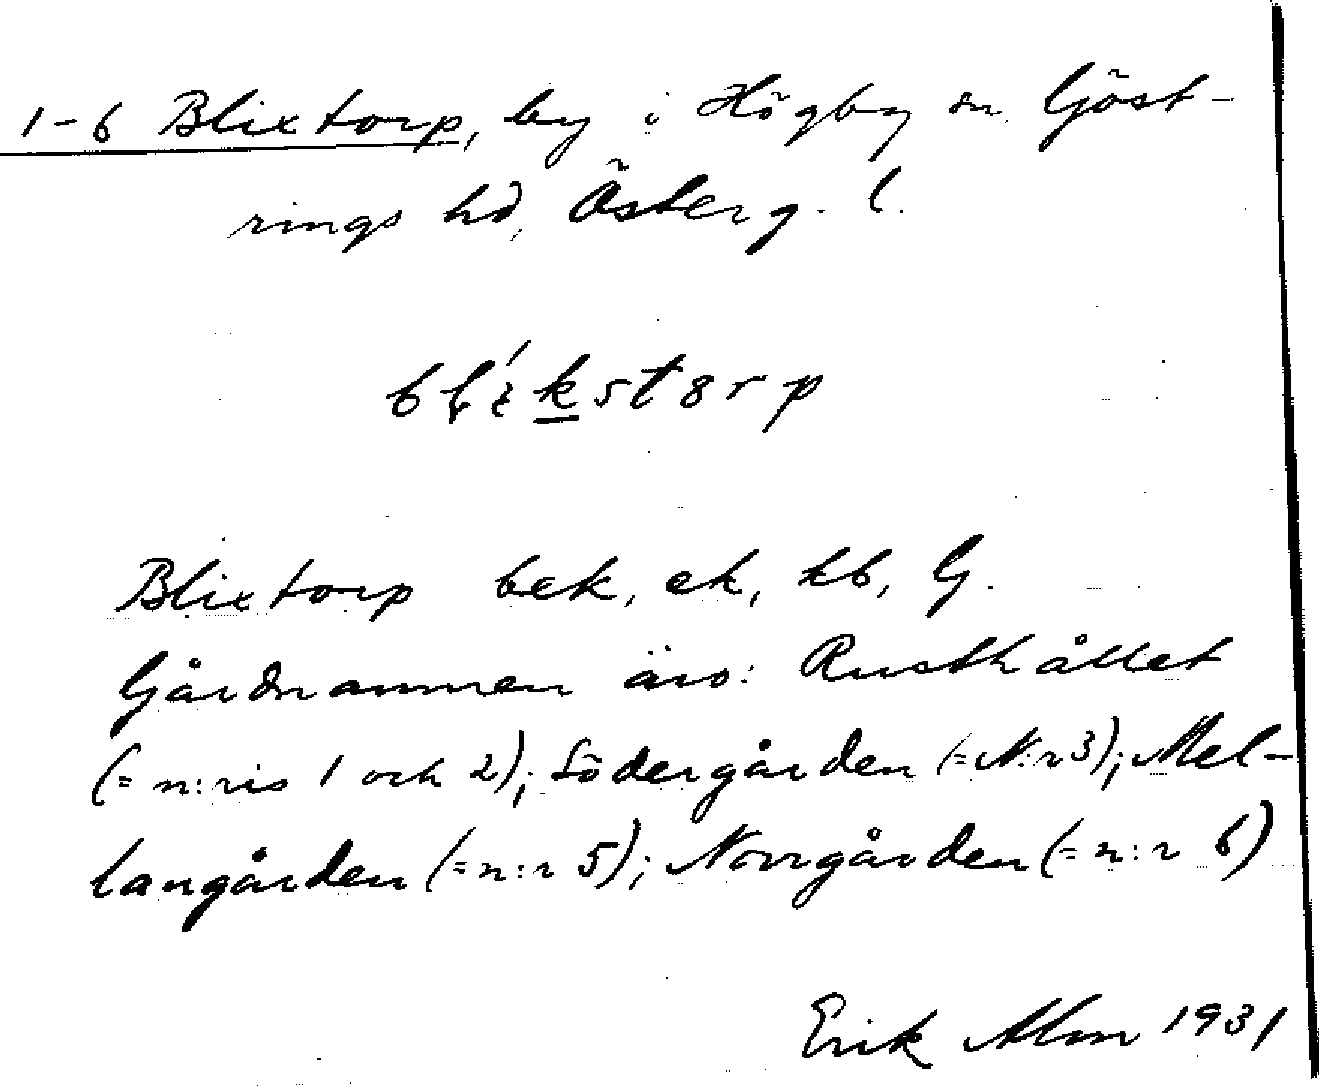 1-6 Blixtorp, by i Högby sn. Göst-
rings hd, Österg. l.
blikstorp
Blixtorp bek, ek, kb, G.
Gårdnamnen äro: Rusthållet
(= n:ris 1 och 2); Södergården (= N:r 3); Mel-
langården (= n:r 5); Norrgården (= n:r 6)
Erik Alm 1931